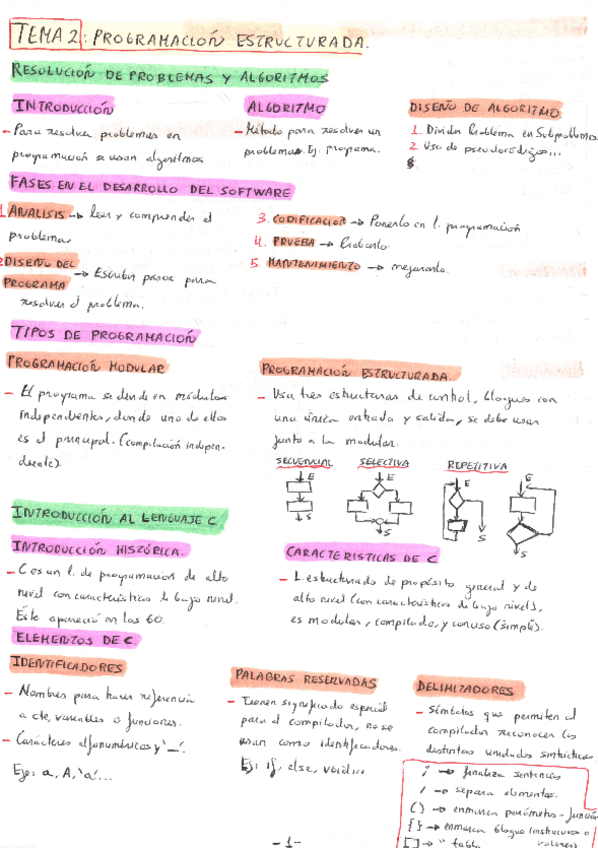 TEMA 2: PROGRAMACIÓN ESTRUCTURADA.
RESOLUCIÓN DE PROBLEMAS Y ALGORITMOS
INTRODUCCIÓN
- Para resolver problemas en
programación se usan algoritmos
ALGORITMO
- Método para resolver un
problema. Ej. programa.
DISEÑO DE ALGORITMO
1. Dividir Problema en Subproblemas
2. Uso de pseudocódigos...
FASES EN EL DESARROLLO DEL SOFTWARE
1. ANALISIS -> leer y comprender el
problema
2. DISEÑO DEL
PROGRAMA -> Escribir pasos para
resolver el problema.
3. CODIFICACION -> Ponerlo en l. programación
4. PRUEBA -> Probarlo.
5. MANTENIMIENTO -> mejorarlo.
TIPOS DE PROGRAMACIÓN
PROGRAMACIÓN MODULAR
- El programa se divide en módulos
independientes, donde uno de ellos
es el principal. (compilación indepen-
diente).
PROGRAMACIÓN ESTRUCTURADA.
- Usa tres estructuras de control, bloques con
una única entrada y salida, se debe usar
junto a la modular.
SECUENCIAL
E
S
SELECTIVA
E
S
REPETITIVA
E
S
E
S
INTRODUCCIÓN AL LENGUAJE C
INTRODUCCIÓN HISTÓRICA.
- C es un l. de programación de alto
nivel con características de bajo nivel.
Este apareció en los 60.
CARACTERISTICAS DE C
- L. estructurado de propósito general y de
alto nivel (con características de bajo nivel),
es modular, compilado, y conciso (simple).
ELEMENTOS DE C
IDENTIFICADORES
- Nombres para hacer referencia
a cte, variables o funciones.
- Carácteres alfanuméricos y '_'.
Eje: a, A, 'a'...
PALABRAS RESERVADAS
- Tienen significado especial
para el compilador, no se
usan como identificadores.
Ej: if, else, void...
DELIMITADORES
- Símbolos que permiten al
compilador reconocer las
distintas unidades sintácticas
; -> finaliza sentencias
, -> separa elementos.
( ) -> enmarca parámetros - función
{ } -> enmarca bloque (instrucciones o
valores)
[ ] -> " tabla
- 1 -